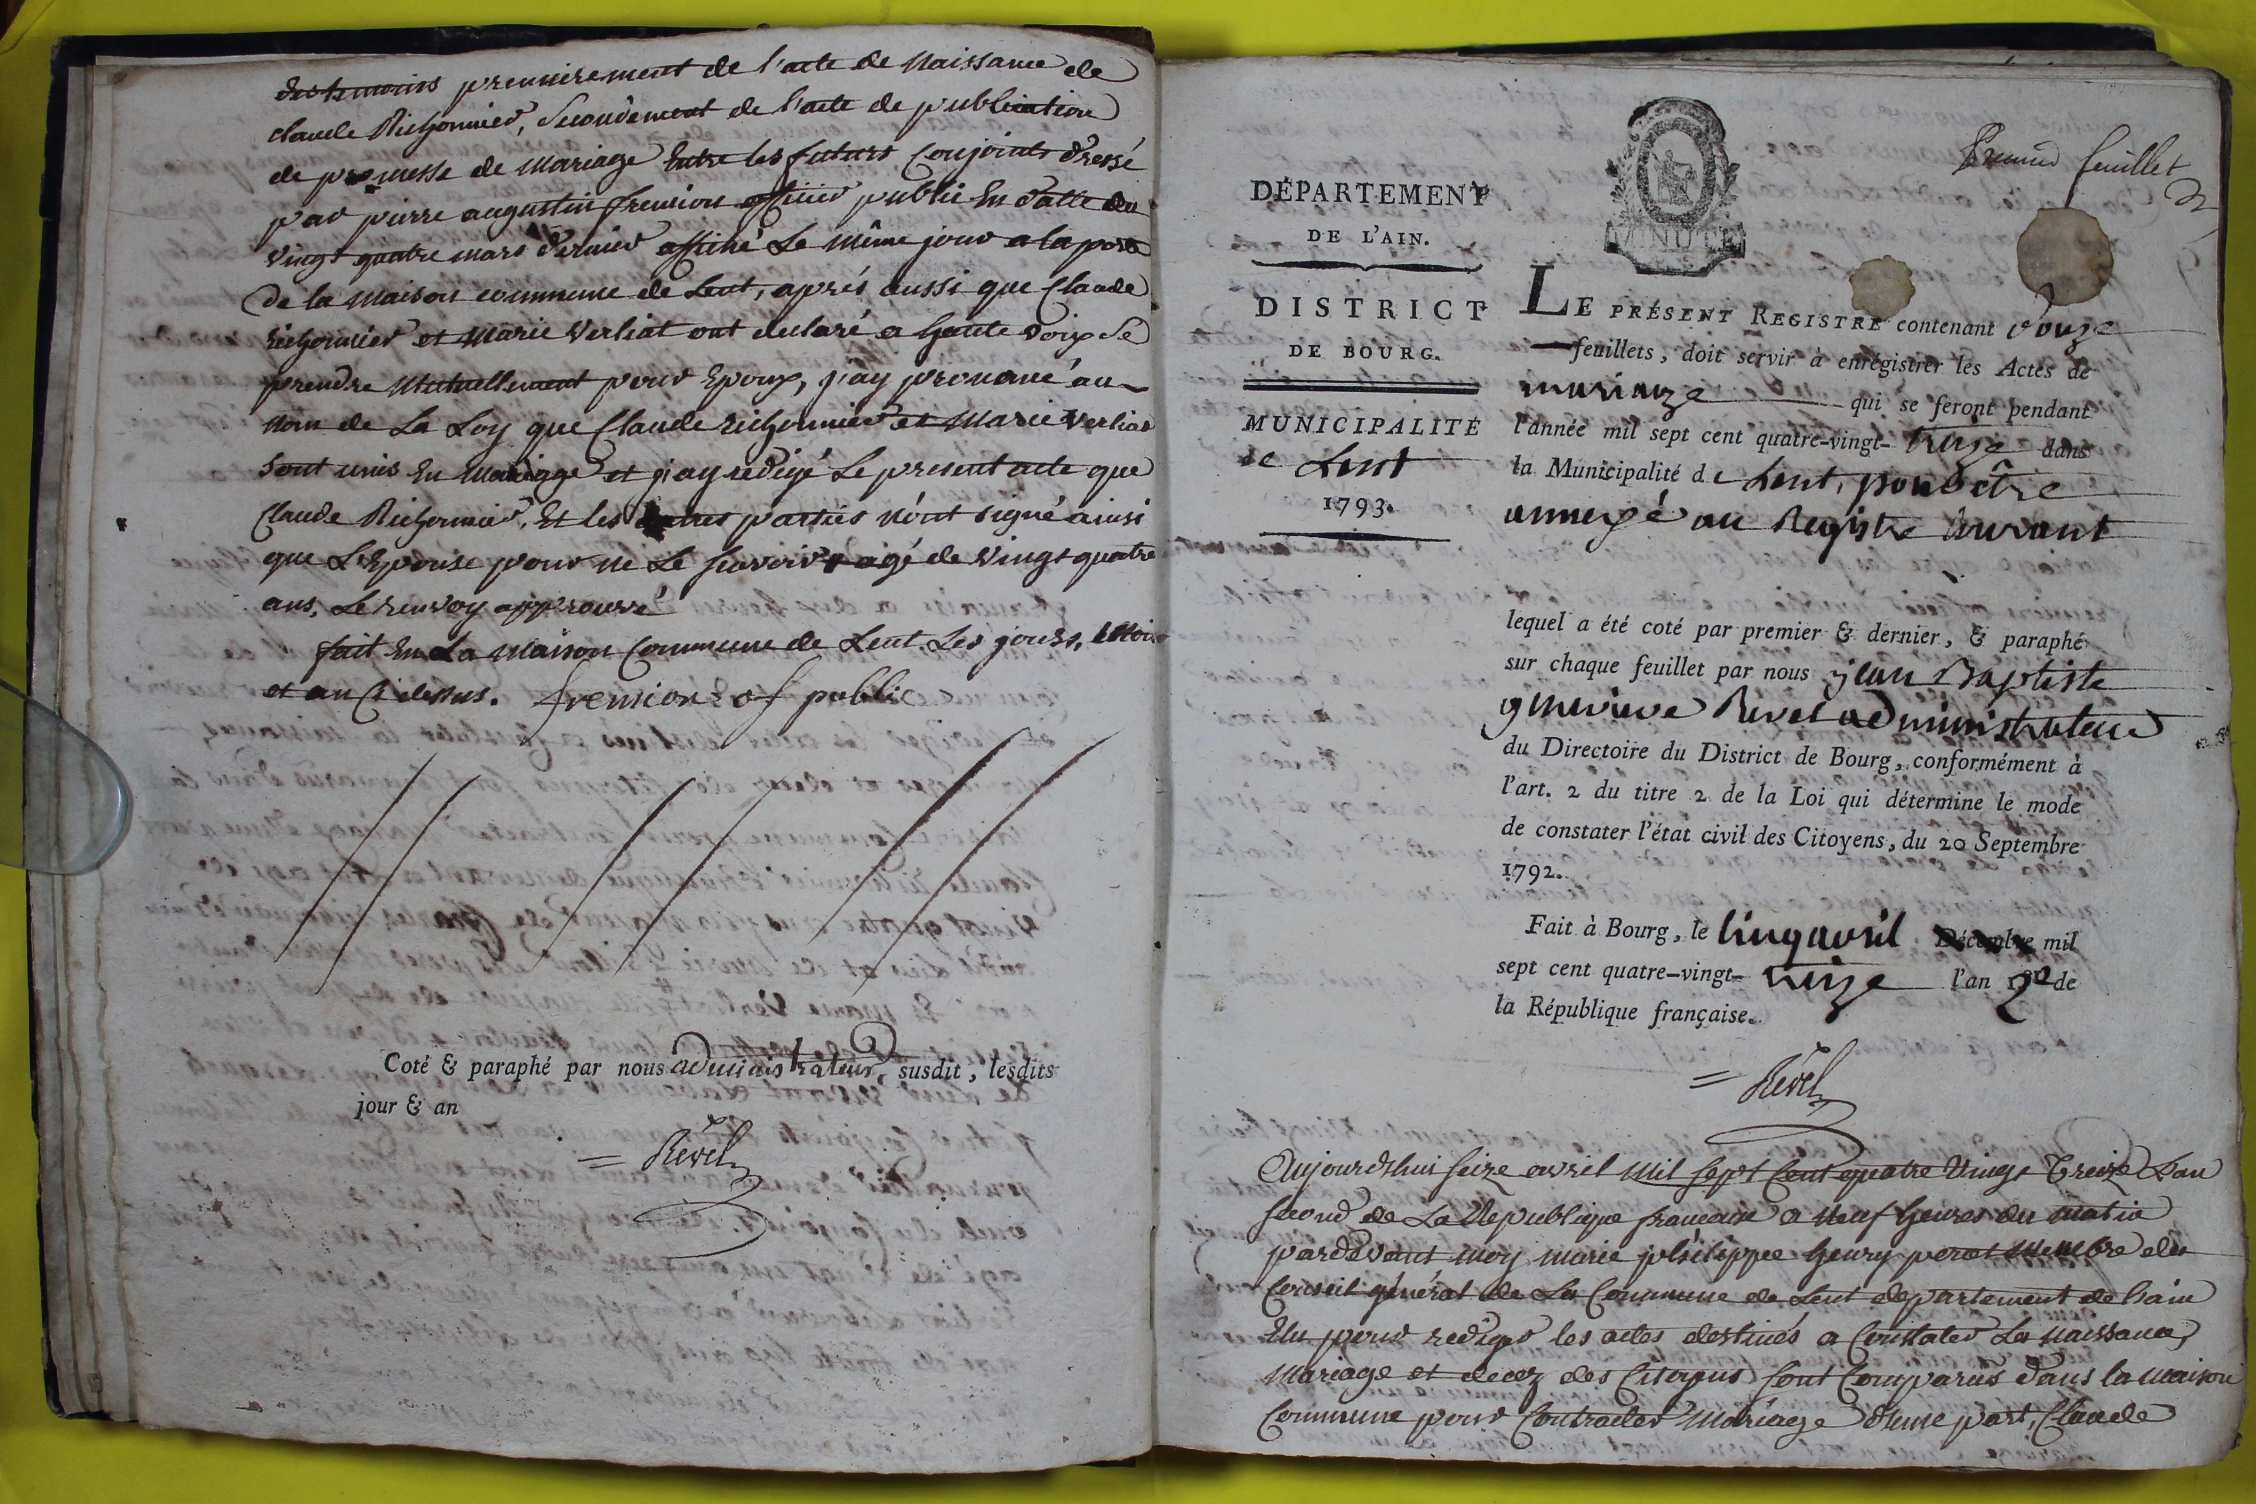 des temoins premierement de l'acte de Naissance de
claude Richonnier, Secondement de l'acte de publication
de promesse de mariage Entre les futurs Conjoints dressé
par pierre augustin fremion officier public En datte du
vingt quatre mars dernier affiché Le même jour a la porte
De la maison commune de Lent, aprés aussi que Claude
richonnier et Marie Verliat ont declaré a haute voix Se
prendre Mutuellement pour Epoux, j'ay prononcé au
Nom de La Loy que Claude richonnier et Marie Verliat
sont unis En mariage et j'ay redigé Le present acte que
Claude Richonnier, Et les autres parties n'ont signé ainsi
que L'Epouse pour ne Le scavoir agé de vingt quatre
ans. Le renvoy approuvé
fait En La Maison Commune de Lent Les jours, Mois
et an Ci dessus. fremion of public
Coté & paraphé par nous administrateur, susdit, lesdits
jour & an
= Revel
Premier feuillet
MINUTE
DÉPARTEMENT
DE L'AIN.
DISTRICT
DE BOURG.
MUNICIPALITÉ
de Lent
1793.
LE PRÉSENT REGISTRE contenant douze
feuillets, doit servir à enrégistrer les Actes de
mariage qui se feront pendant
l'année mil sept cent quatre-vingt- treize dans
la Municipalité de Lent, pour être
annexé au Registre Courant
lequel a été coté par premier & dernier, & paraphé
sur chaque feuillet par nous jean Baptiste
genevieve Revel administrateur
du Directoire du District de Bourg, conformément à
l'art. 2 du titre 2 de la Loi qui détermine le mode
de constater l'état civil des Citoyens, du 20 Septembre
1792.
Fait à Bourg, le cinq avril Décembre mil
sept cent quatre-vingt- treize l'an 2e de
la République française.
= Revel
Aujourd'hui seize avril Mil sept Cent quatre Vingt Treize L'an
second de La Republique francaise a Neuf heures du matin
pardevant moy marie philippe henry peret Membre du
Conseil général de La Commune de Lent departement de l'ain
Elu pour rediger les actes destinés a Constater La naissance,
Mariage et decez des Citoyens sont Comparus dans la maison
Commune pour Contracter Mariage d'une part, Claude